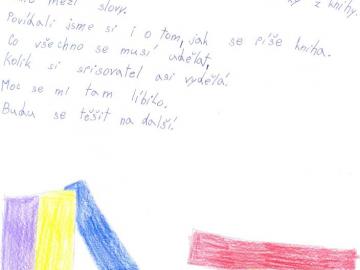 mezi slovy.
z knihy.
Povídali jsme si i o tom, jak se píše kniha.
Co všechno se musí udělat,
kolik si spisovatel asi vydělá.
Moc se mi tam líbilo.
Budu se těšit na další.